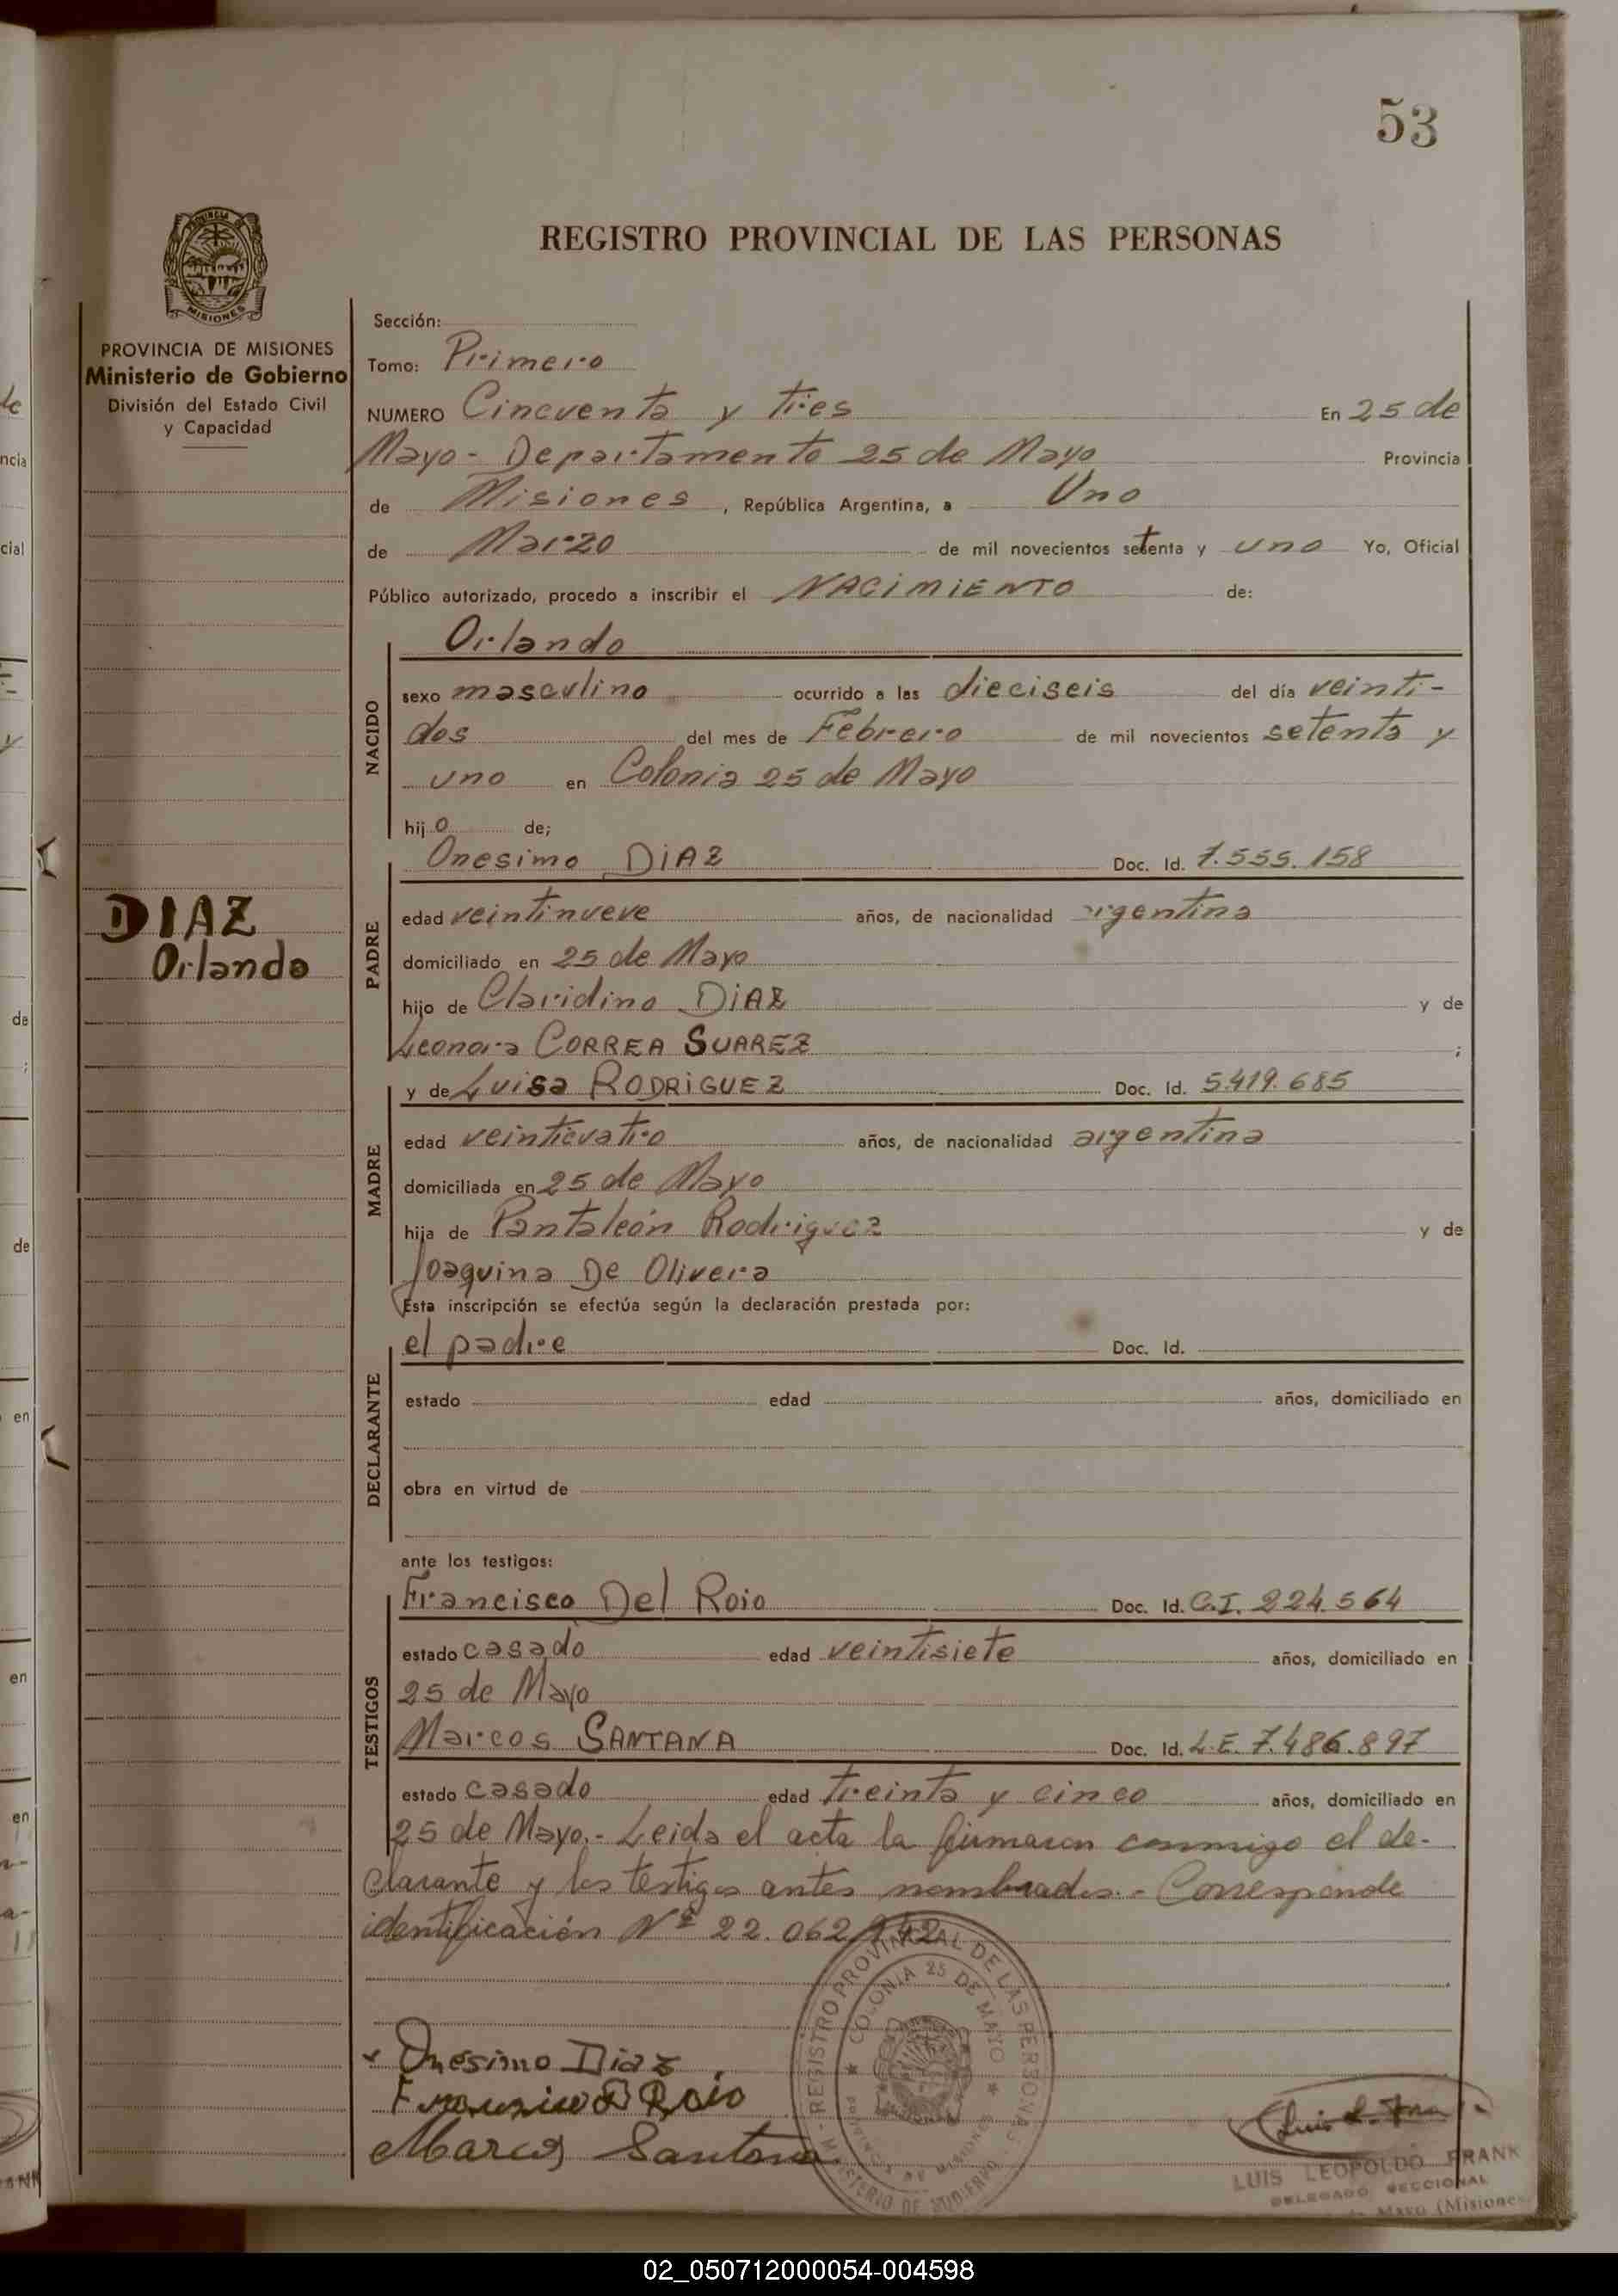 53
PROVINCIA
MISIONES
REGISTRO PROVINCIAL DE LAS PERSONAS
PROVINCIA DE MISIONES
Ministerio de Gobierno
División del Estado Civil
y Capacidad
Sección:
Tomo: Primero
NUMERO Cincuenta y tres En 25 de
Mayo - Departamento 25 de Mayo Provincia
de Misiones, República Argentina, a Uno
de Marzo de mil novecientos setenta y uno Yo, Oficial
Público autorizado, procedo a inscribir el NACIMIENTO de:
Orlando
NACIDO
sexo masculino ocurrido a las dieciseis del día veinti-
dos del mes de Febrero de mil novecientos setenta y
uno en Colonia 25 de Mayo
hijo de;
Onesimo DIAZ Doc. Id. 7.555.158
DIAZ
Orlando
PADRE
edad veintinueve años, de nacionalidad argentina
domiciliado en 25 de Mayo
hijo de Claridino DIAZ y de
Leonora CORREA SUAREZ ;
y de Luisa RODRIGUEZ Doc. Id. 5.419.685
MADRE
edad veinticuatro años, de nacionalidad argentina
domiciliada en 25 de Mayo
hija de Pantaleón Rodriguez y de
Joaquina De Olivera
Esta inscripción se efectúa según la declaración prestada por:
el padre Doc. Id.
DECLARANTE
estado edad años, domiciliado en
obra en virtud de
ante los testigos:
Francisco Del Roio Doc. Id. C.I. 224.564
TESTIGOS
estado casado edad veintisiete años, domiciliado en
25 de Mayo
Marcos SANTANA Doc. Id. L.E. 7.486.897
estado casado edad treinta y cinco años, domiciliado en
25 de Mayo.- Leida el acta la firmaron conmigo el de-
clarante y los testigos antes nombrados.- Corresponde
identificación Nº 22.062
REGISTRO PROVINCIAL DE LAS PERSONAS - MINISTERIO DE GOBIERNO
COLONIA 25 DE MAYO
PROVINCIA DE MISIONES
Onesimo Diaz
Roio
Marcos Santana
LUIS LEOPOLDO FRANK
DELEGADO SECCIONAL
Mayo (Misiones)
02_050712000054-004598